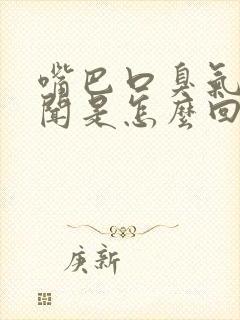 嘴巴口臭氣
聞是怎麼回
庚新